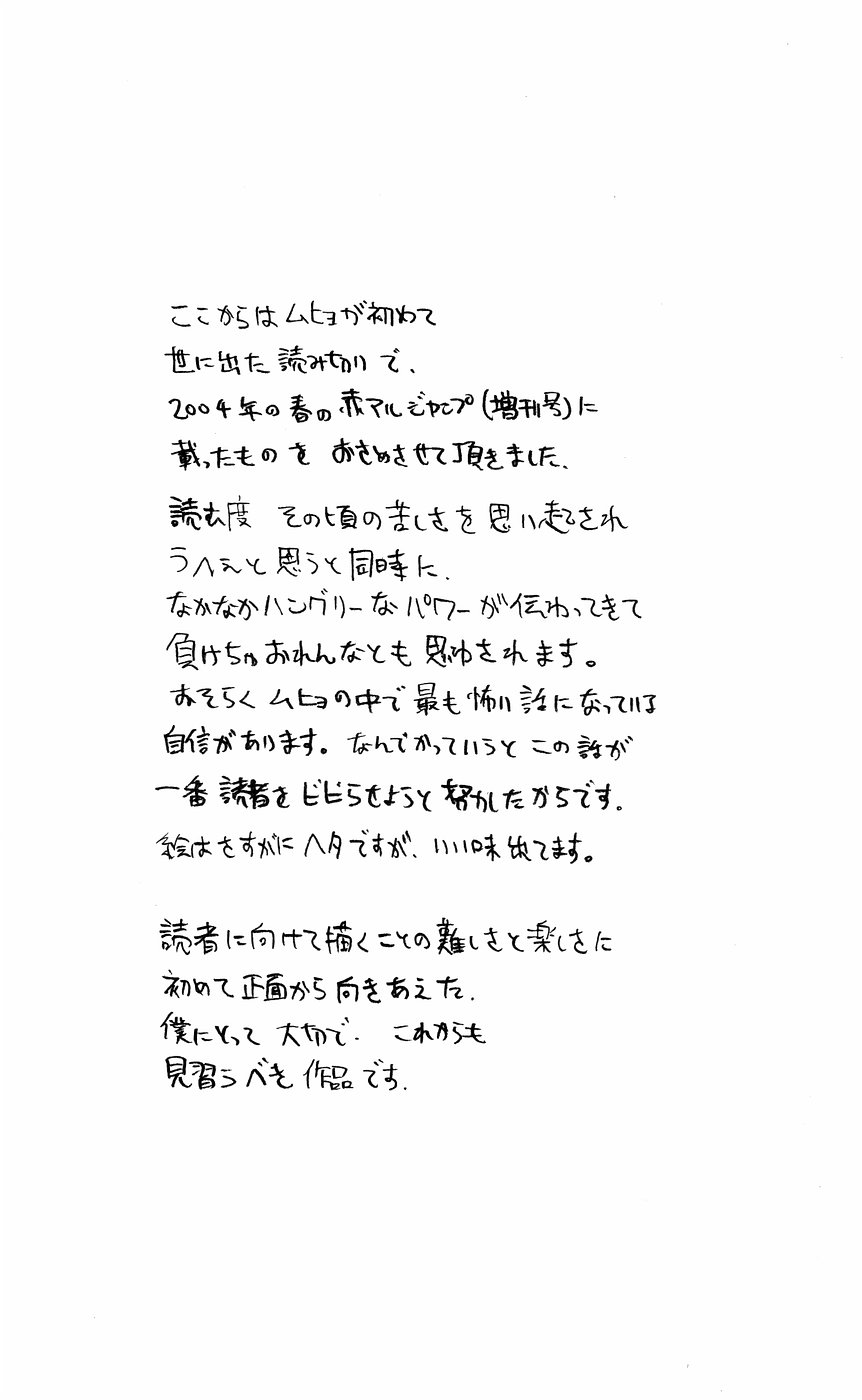 ここからはムヒョが初めて
世に出た読みきりで、
2004年の春の赤マルジャンプ(増刊号)に
載ったものを おさめさせて頂きました、
読む度 その頃の苦しさを思い起され
うへぇと思うと同時に、
なかなかハングリーなパワーが伝わってきて
負けちゃおれんなとも思わされます。
おそらくムヒョの中で最も怖い話になっている
自信があります。なんでかっていうとこの話が
一番読者をビビらせようと努力したからです.
絵はさすがにヘタですが、いい味出てます。
読者に向けて描くことの難しさと楽しさに
初めて正面から向きあえた.
僕にとって大切で. これからも
見習うべき作品です.